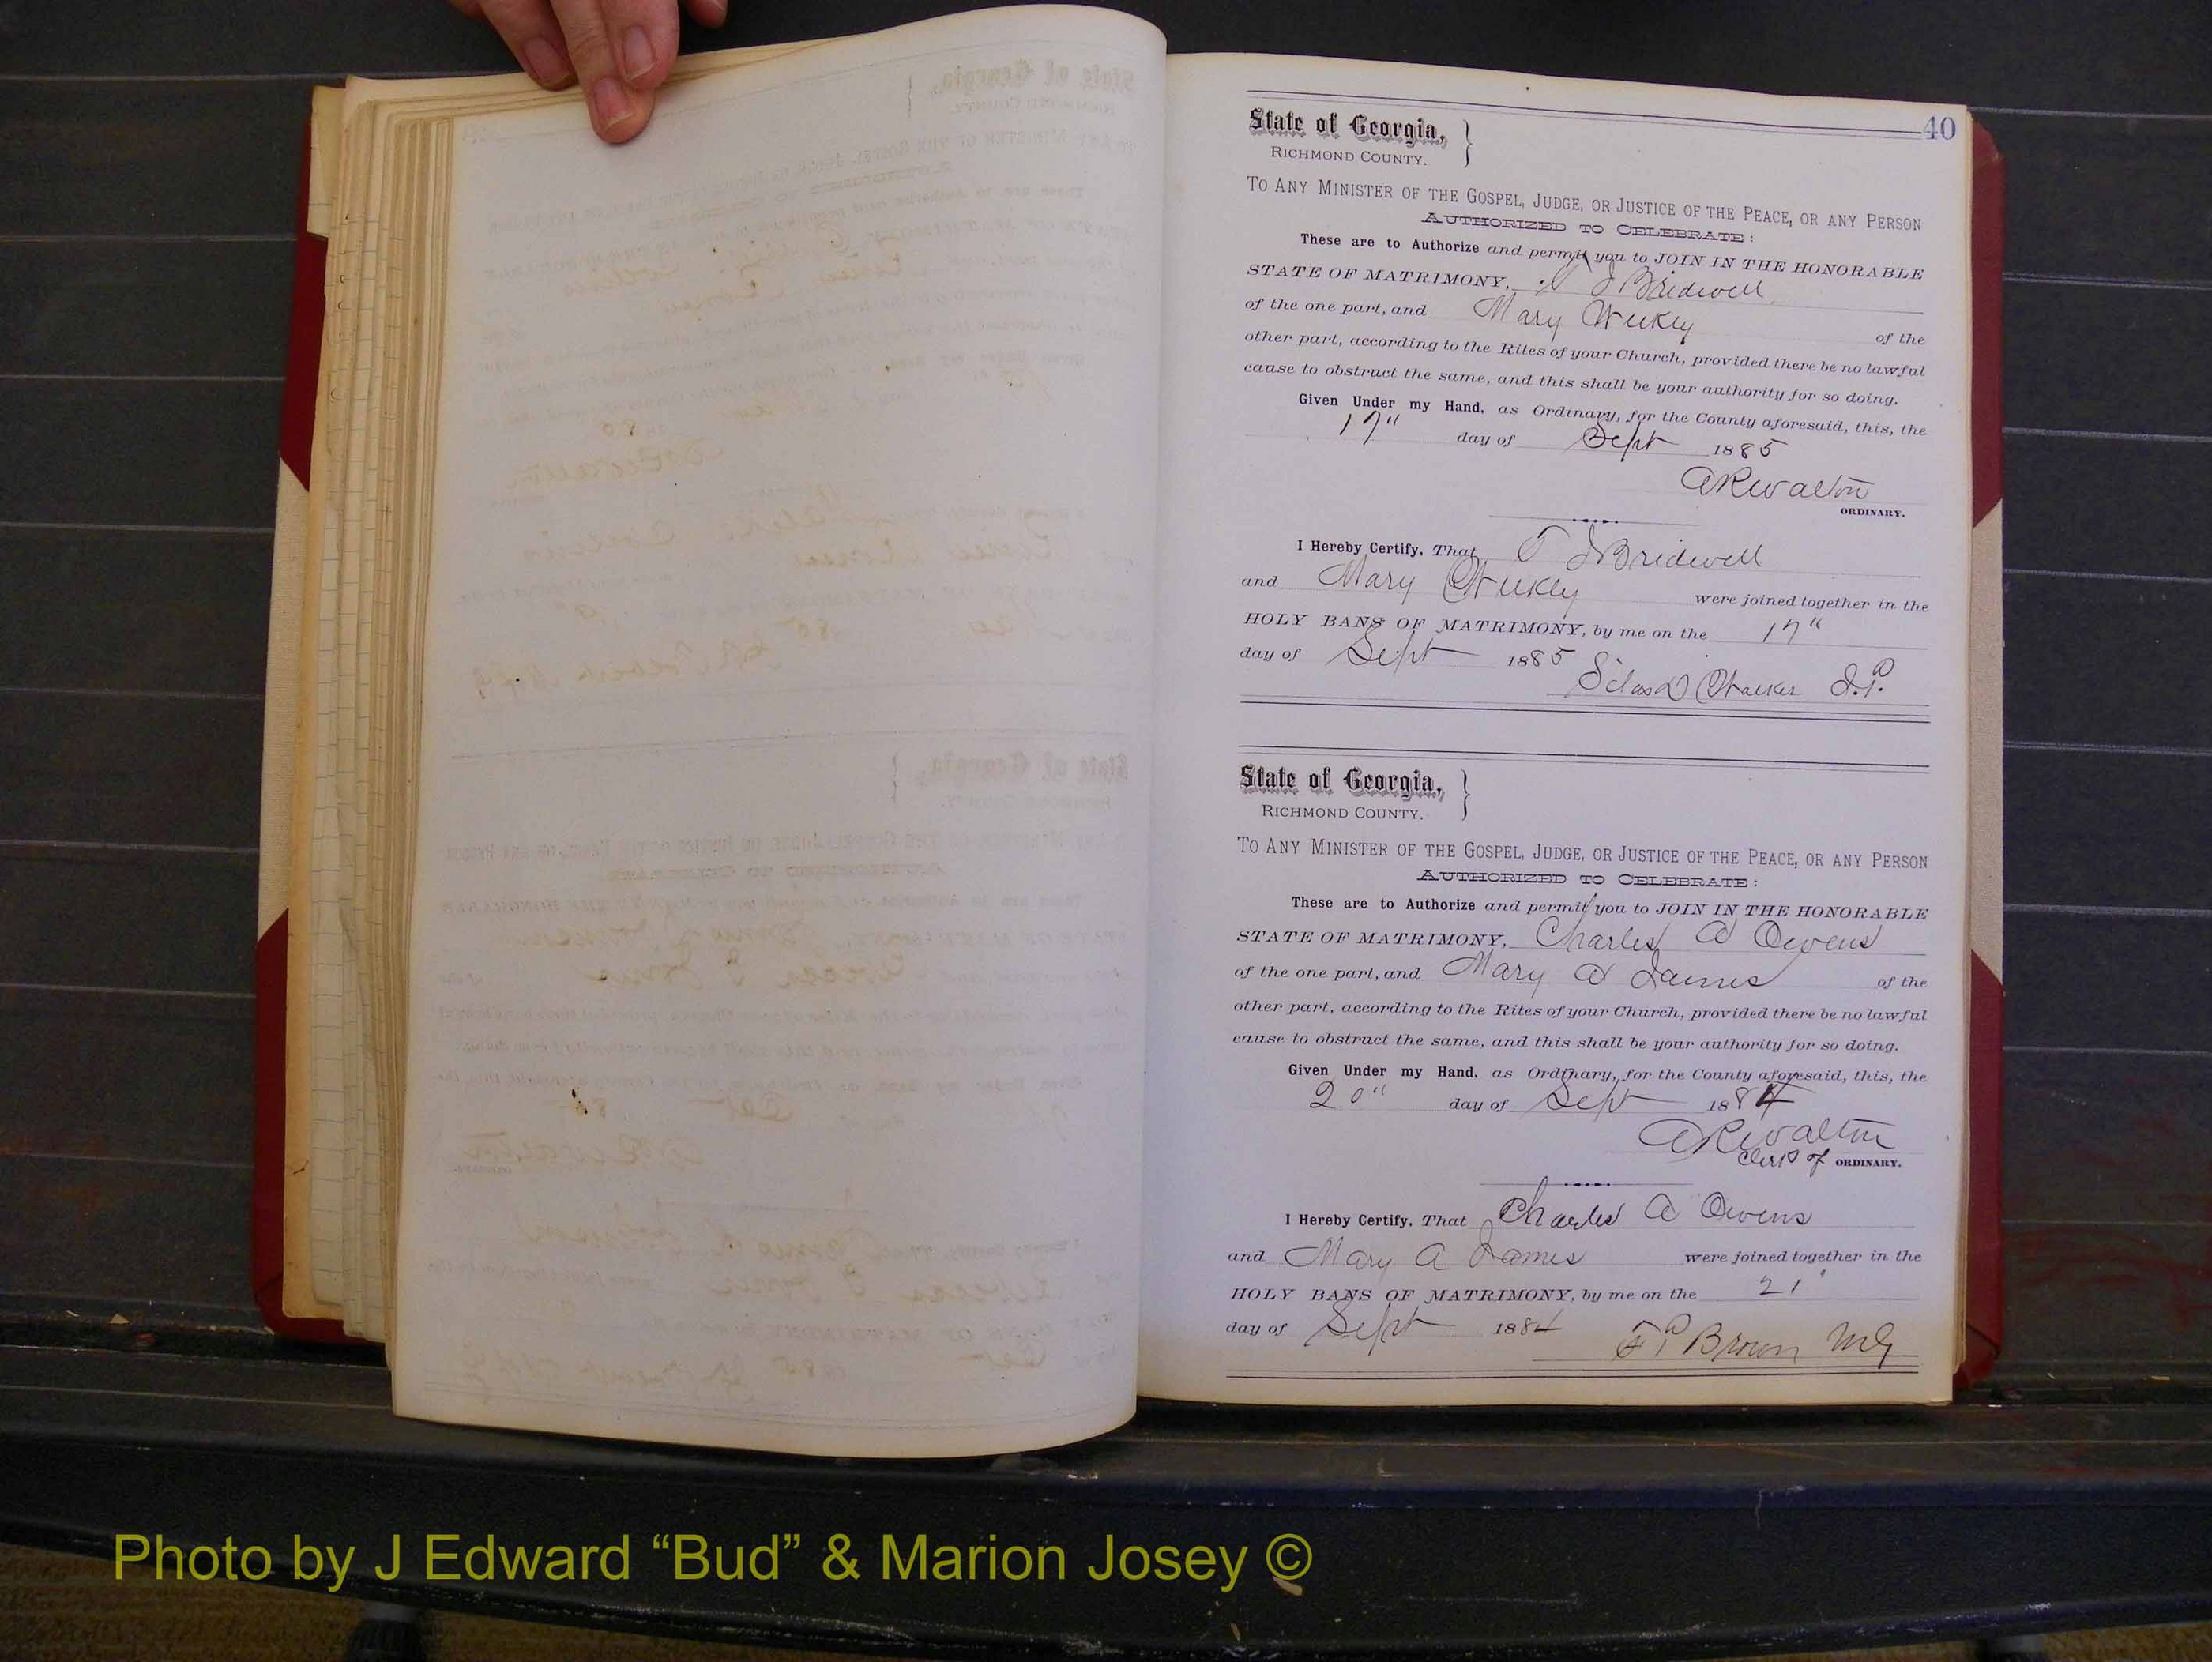 40
State of Georgia,
RICHMOND COUNTY.
TO ANY MINISTER OF THE GOSPEL, JUDGE, OR JUSTICE OF THE PEACE, OR ANY PERSON
AUTHORIZED TO CELEBRATE:
These are to Authorize and permit you to JOIN IN THE HONORABLE
STATE OF MATRIMONY, J Bridwell
of the one part, and Mary of the
other part, according to the Rites of your Church, provided there be no lawful
cause to obstruct the same, and this shall be your authority for so doing.
Given Under my Hand, as Ordinary, for the County aforesaid, this, the
17" day of Sept 1885
A R Walton
ORDINARY.
I Hereby Certify, That J Bridwell
and Mary were joined together in the
HOLY BANS OF MATRIMONY, by me on the 17"
day of Sept 1885
Silas D J.P.
State of Georgia,
RICHMOND COUNTY.
TO ANY MINISTER OF THE GOSPEL, JUDGE, OR JUSTICE OF THE PEACE, OR ANY PERSON
AUTHORIZED TO CELEBRATE:
These are to Authorize and permit you to JOIN IN THE HONORABLE
STATE OF MATRIMONY, Charles A Owens
of the one part, and Mary A James of the
other part, according to the Rites of your Church, provided there be no lawful
cause to obstruct the same, and this shall be your authority for so doing.
Given Under my Hand, as Ordinary, for the County aforesaid, this, the
20" day of Sept 1884
A R Walton
Clerk of ORDINARY.
I Hereby Certify, That Charles A Owens
and Mary A James were joined together in the
HOLY BANS OF MATRIMONY, by me on the 21"
day of Sept 1884
Brown MG
Photo by J Edward “Bud” & Marion Josey ©